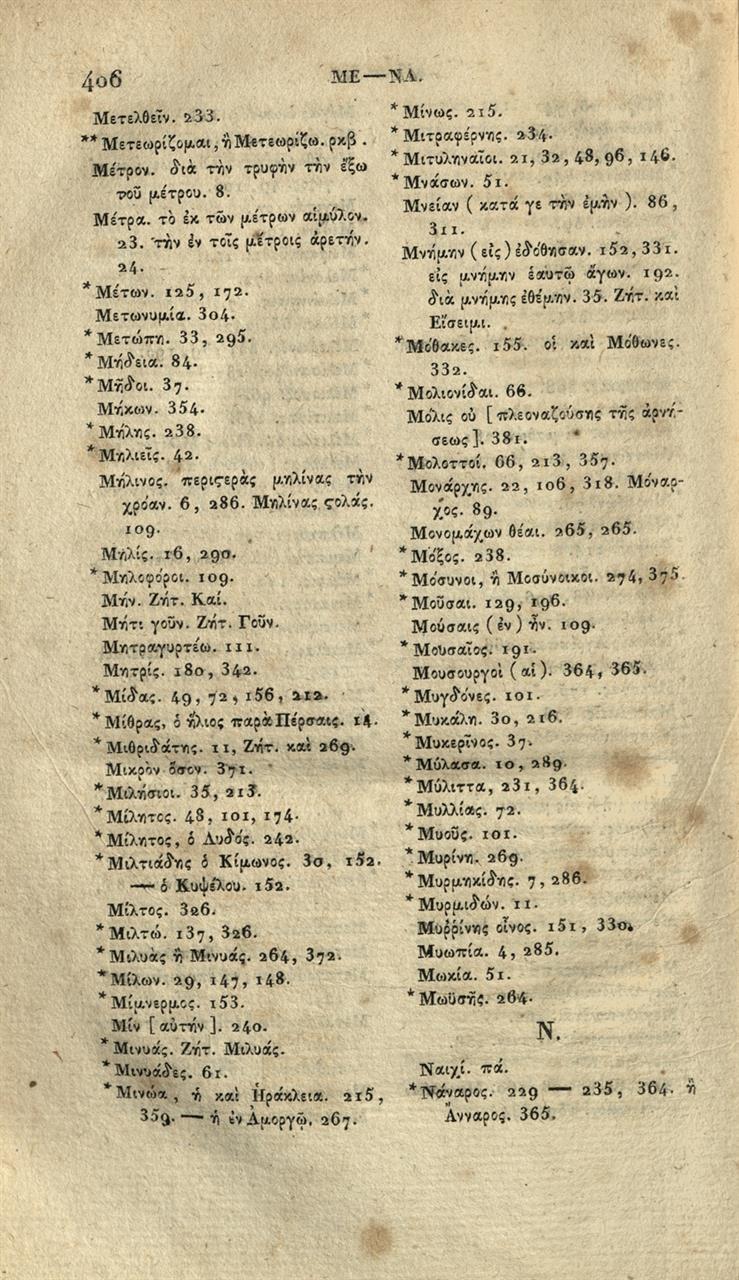 406
ΜΕ—ΝΑ.
Μετελθεῖν. 233.
** Μετεωρίζομαι, ἢ Μετεωρίζω. ρκβ.
Μέτρον. διὰ τὴν τρυφὴν τὴν ἔξω
τοῦ μέτρου. 8.
Μέτρα. τὸ ἐκ τῶν μέτρων αἱμύλον.
23. τὴν ἐν τοῖς μέτροις ἀρετήν.
24.
* Μέτων. 125, 172.
Μετωνυμία. 304.
* Μετώπη. 33, 295.
* Μήδεια. 84.
* Μῆδοι. 37.
Μήκων. 354.
* Μήλης. 238.
* Μηλιεῖς. 42.
Μήλινος. περιϛερὰς μηλίνας τὴν
χρόαν. 6, 286. Μηλίνας ϛολάς.
109.
Μηλίς. 16, 290.
* Μηλοφόροι. 109.
Μήν. Ζήτ. Καί.
Μήτι γοῦν. Ζήτ. Γοῦν.
Μητραγυρτέω. 111.
Μητρίς. 180, 342.
* Μίδας. 49, 72, 156, 212.
* Μίθρας, ὁ ἥλιος παρὰ Πέρσαις. 14.
* Μιθριδάτης. 11, Ζήτ. καὶ 269.
Μικρὸν ὅσον. 371.
* Μιλήσιοι. 35, 213.
* Μίλητος. 48, 101, 174.
* Μίλητος, ὁ Λυδός. 242.
* Μιλτιάδης ὁ Κίμωνος. 30, 152.
— ὁ Κυψέλου. 152.
Μίλτος. 326.
* Μιλτώ. 137, 326.
* Μιλυὰς ἢ Μινυάς. 264, 372.
* Μίλων. 29, 147, 148.
* Μίμνερμος. 153.
Μίν [αὐτήν]. 240.
* Μινυάς. Ζήτ. Μιλυάς.
* Μινυάδες. 61.
* Μινώα, ἡ καὶ Ἡράκλεια. 215,
359. — ἡ ἐν Ἀμοργῷ. 267.
* Μίνως. 215.
* Μιτραφέρνης. 234.
* Μιτυληναῖοι. 21, 32, 48, 96, 146.
* Μνάσων. 51.
Μνείαν (κατά γε τὴν ἐμὴν). 86,
311.
Μνήμην (εἰς) ἐδόθησαν. 152, 331.
εἰς μνήμην ἑαυτῷ ἄγων. 192.
διὰ μνήμης ἐθέμην. 35. Ζήτ. καὶ
Εἴσειμι.
* Μόθακες. 155. οἱ καὶ Μόθωνες.
332.
* Μολιονίδαι. 66.
Μόλις οὐ [πλεοναζούσης τῆς ἀρνή-
σεως]. 381.
* Μολοττοί. 66, 213, 357.
Μονάρχης. 22, 106, 318. Μόναρ-
χος. 89.
Μονομάχων θέαι. 265, 265.
* Μόξος. 238.
* Μόσυνοι, ἢ Μοσύνοικοι. 274, 375.
* Μοῦσαι. 129, 196.
Μούσαις (ἐν) ἦν. 109.
* Μουσαῖος. 191.
Μουσουργοὶ (αἱ). 364, 365.
* Μυγδόνες. 101.
* Μυκάλη. 30, 216.
* Μυκερῖνος. 37.
* Μύλασα. 10, 289.
* Μύλιττα, 231, 364.
* Μυλλίας. 72.
* Μυοῦς. 101.
* Μυρίνη. 269.
* Μυρμηκίδης. 7, 286.
* Μυρμιδών. 11.
Μυῤῥίνης οἶνος. 151, 330.
Μυωπία. 4, 285.
Μωκία. 51.
* Μωϋσῆς. 264.
Ν.
Ναιχί. πά.
* Νάναρος. 229 — 235, 364. ἢ
Ἄνναρος. 365.